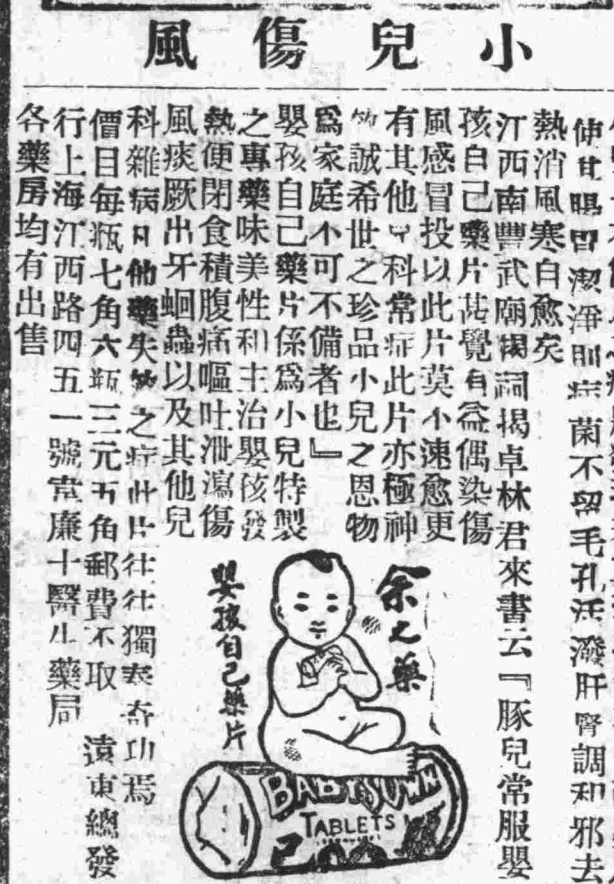 小兒傷風
使其腸胃潔淨則病菌不留毛孔活潑肝腎調和邪去
熱消風寒自愈矣
江西南豐武廟揭祠揭卓林君來書云『豚兒常服嬰
孩自己藥片甚覺有益偶染傷
風感冒投以此片莫不速愈更
有其他兒科常症此片亦極神
效誠希世之珍品小兒之恩物
爲家庭不可不備者也』
嬰孩自己藥片係爲小兒特製
之專藥味美性和主治嬰孩發
熱便閉食積腹痛嘔吐泄瀉傷
風痰厥出牙蛔蟲以及其他兒
科雜病凡他藥失效之症此片往往獨奏奇功焉
價目每瓶七角六瓶三元五角郵費不取 遠東總發
行上海江西路四五一號韋廉士醫生藥局
各藥房均有出售
余之藥
嬰孩自己藥片
BABY'S OWN
TABLETS